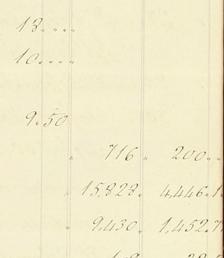 13....
10....
9.50
716 200..
15,323. 4,446.1
9,430. 1,452.7